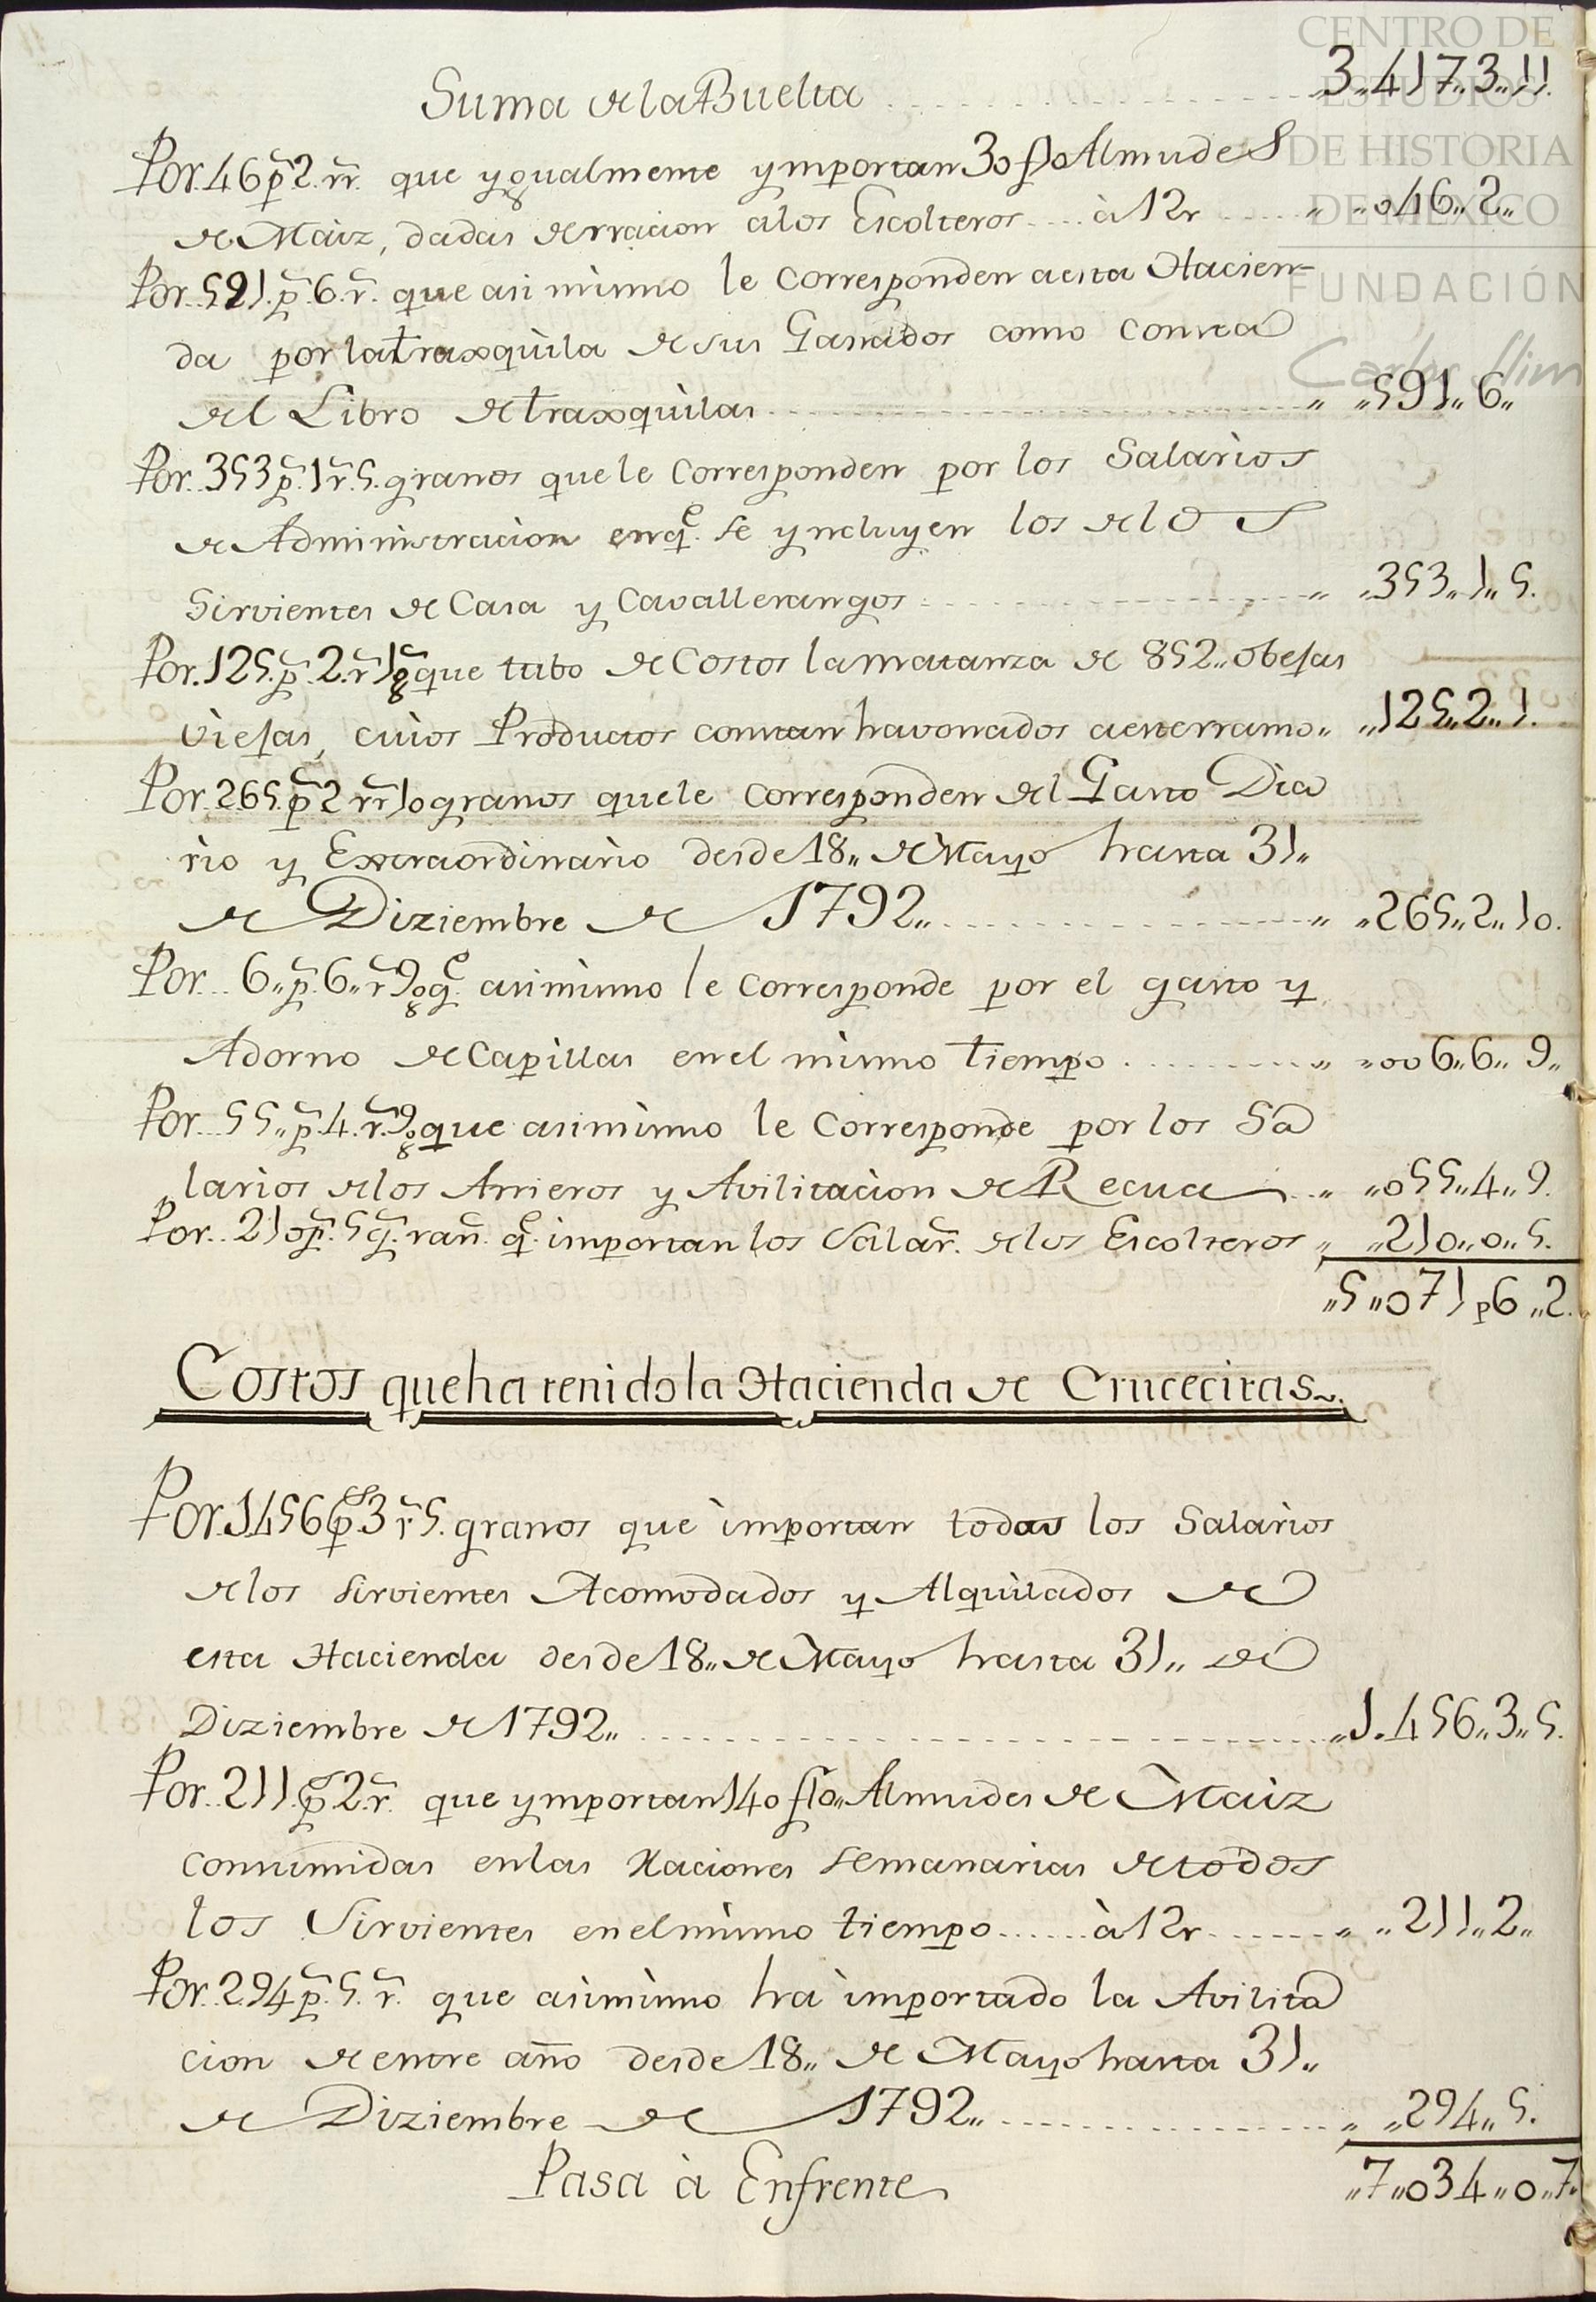 CENTRO DE
ESTUDIOS
DE HISTORIA
DE MÉXICO
FUNDACIÓN
Carlos Slim
Suma de la Buelta ,,3,,417,,3,,11.
Por. 46 p.s 2. rr.s que ygualmente ymportan 30 f 10 Almudes
de Maiz, dadas de rracion alos Escolteros a 12 r ,, ,,046,,2,,
Por. 591. p.s 6. r.s que asi mismo le corresponden a esta Hacien-
da por la traxquila de sus Ganados como consta
del Libro de traxquilas ,, ,,591,,6,,
Por. 353 p.s 1 r. 5. granos que le corresponden por los Salarios
de Administracion en q.e se yncluyen los de los
Sirvientes de Casa y Cavallerangos ,, ,,353,,1,,5.
Por. 125. p.s 2. r.s 1 g.o que tubo de Costos la matanza de 852,, obejas
viejas, cuios Productos constan havonados a este rramo,, ,,125,,2,,1.
Por. 265. p.s 2 rr.s 10 granos que le corresponden del Gasto Dia
rio y Extraordinario desde 18,, de Mayo hasta 31,,
de Diziembre de 1792,, ,, ,,265,,2,,10.
Por. 6,, p.s 6,, r.s 9 g.s q.e asi mismo le corresponde por el gasto y
Adorno de Capillas en el mismo tiempo ,, ,,006,,6,,9,,
Por. 55,, p.s 4. r.s 9 g.s que asi mismo le corresponde por los Sa
larios de los Arrieros y Avilitacion de Recua ,, ,,055,,4,,9.
Por. 210 p.s 5 g.ran.s q.e importan los Salar.s de los Escolteros ,, ,,210,,0,,5.
,,5,,071 p 6,,2.
Costos que ha tenido la Hacienda de Crucecitas
Por. 1456 p.s 3 r.s 5. granos que importan todos los Salarios
de los sirvientes Acomodados y Alquilados de
esta Hacienda desde 18,, de Mayo hasta 31,, de
Diziembre de 1792,, ,,1.456,,3,,5.
Por. 211. p.s 2. r.s que ymportan 140 f 10,, Almudes de Maiz
consumidas en las Raciones semanarias de todos
los Sirvientes en el mismo tiempo a 12 r ,, ,,211,,2,,
Por. 294 p.s 5. r.s que asi mismo ha importado la Avilita
cion de este año desde 18,, de Mayo hasta 31,,
de Diziembre de 1792,, ,, ,,294,,5.
Pasa à Enfrente ,,7,,034,,0,,7.